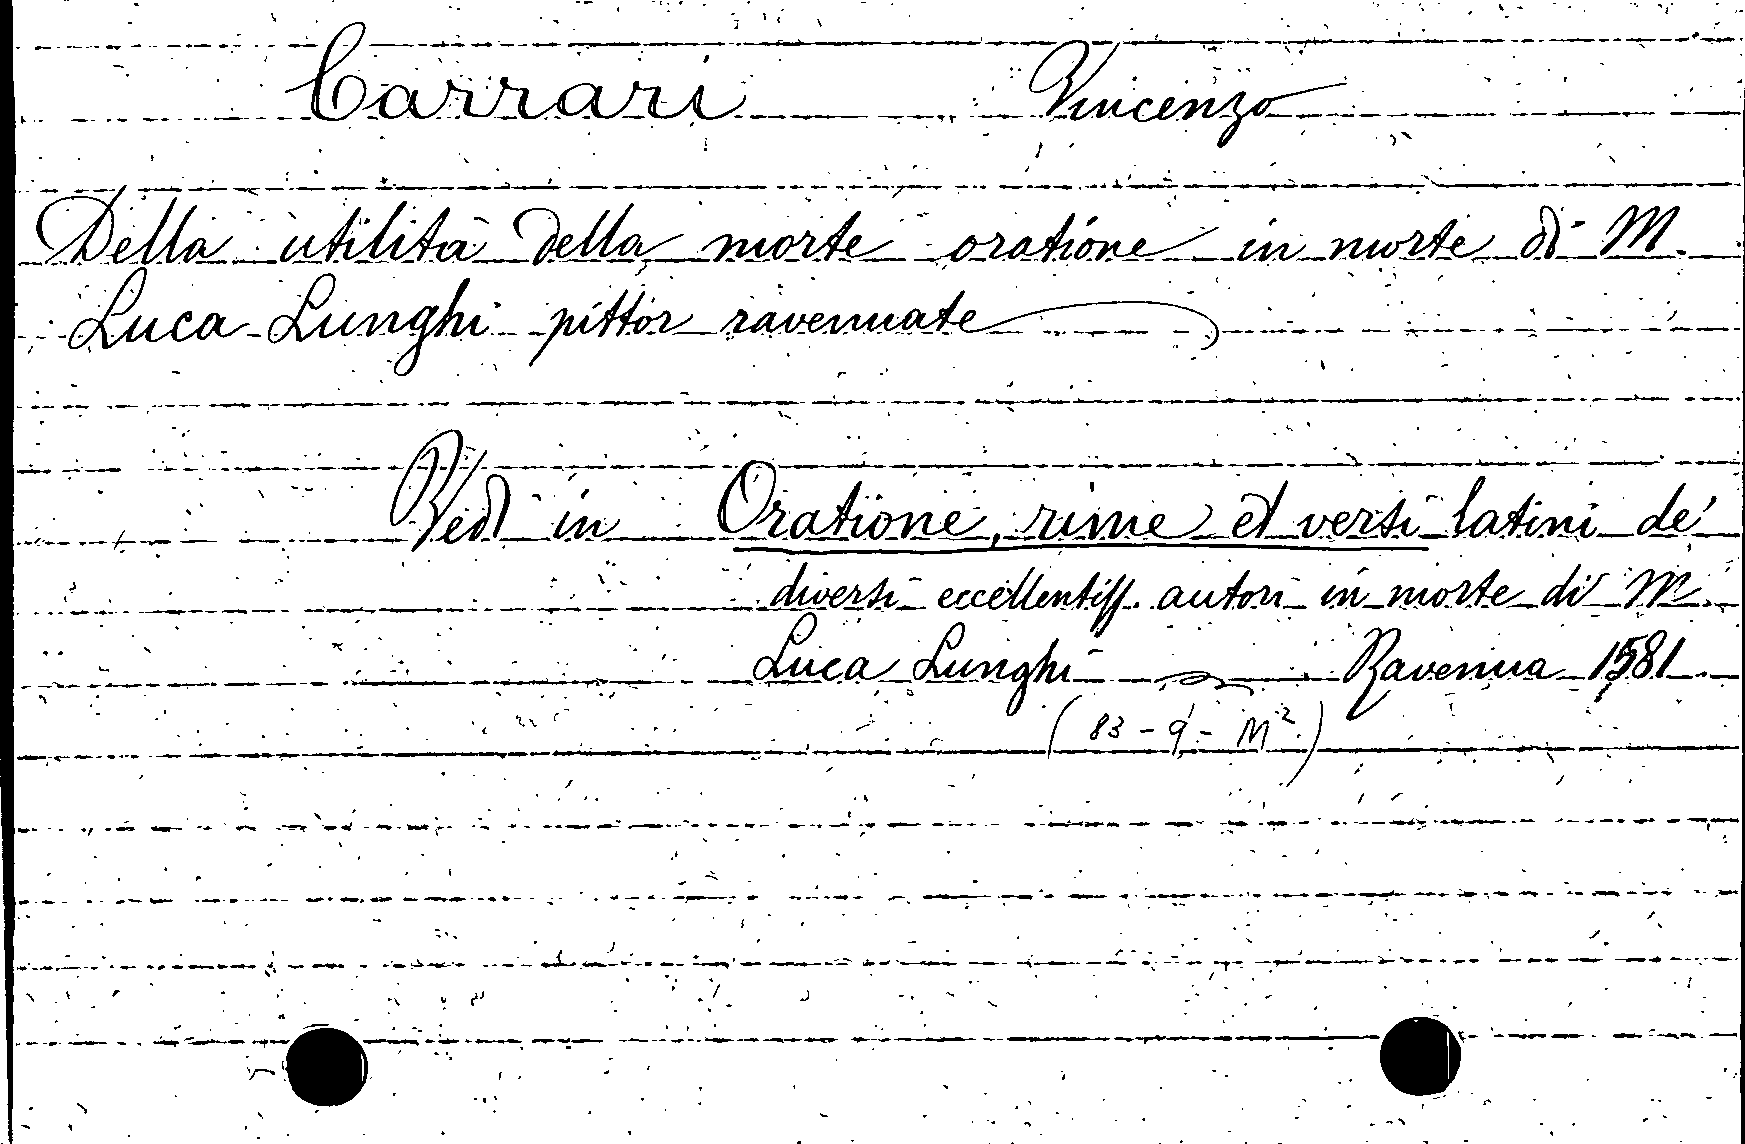 Carrari Vincenzo
Della utilità della morte oratione in morte di M.
Luca Lunghi pittor ravennate
Vedi in Oratione, rime et versi latini de'
diversi eccellentiss. autori in morte di M.
Luca Lunghi Ravenna 1581
(83-9-M².)